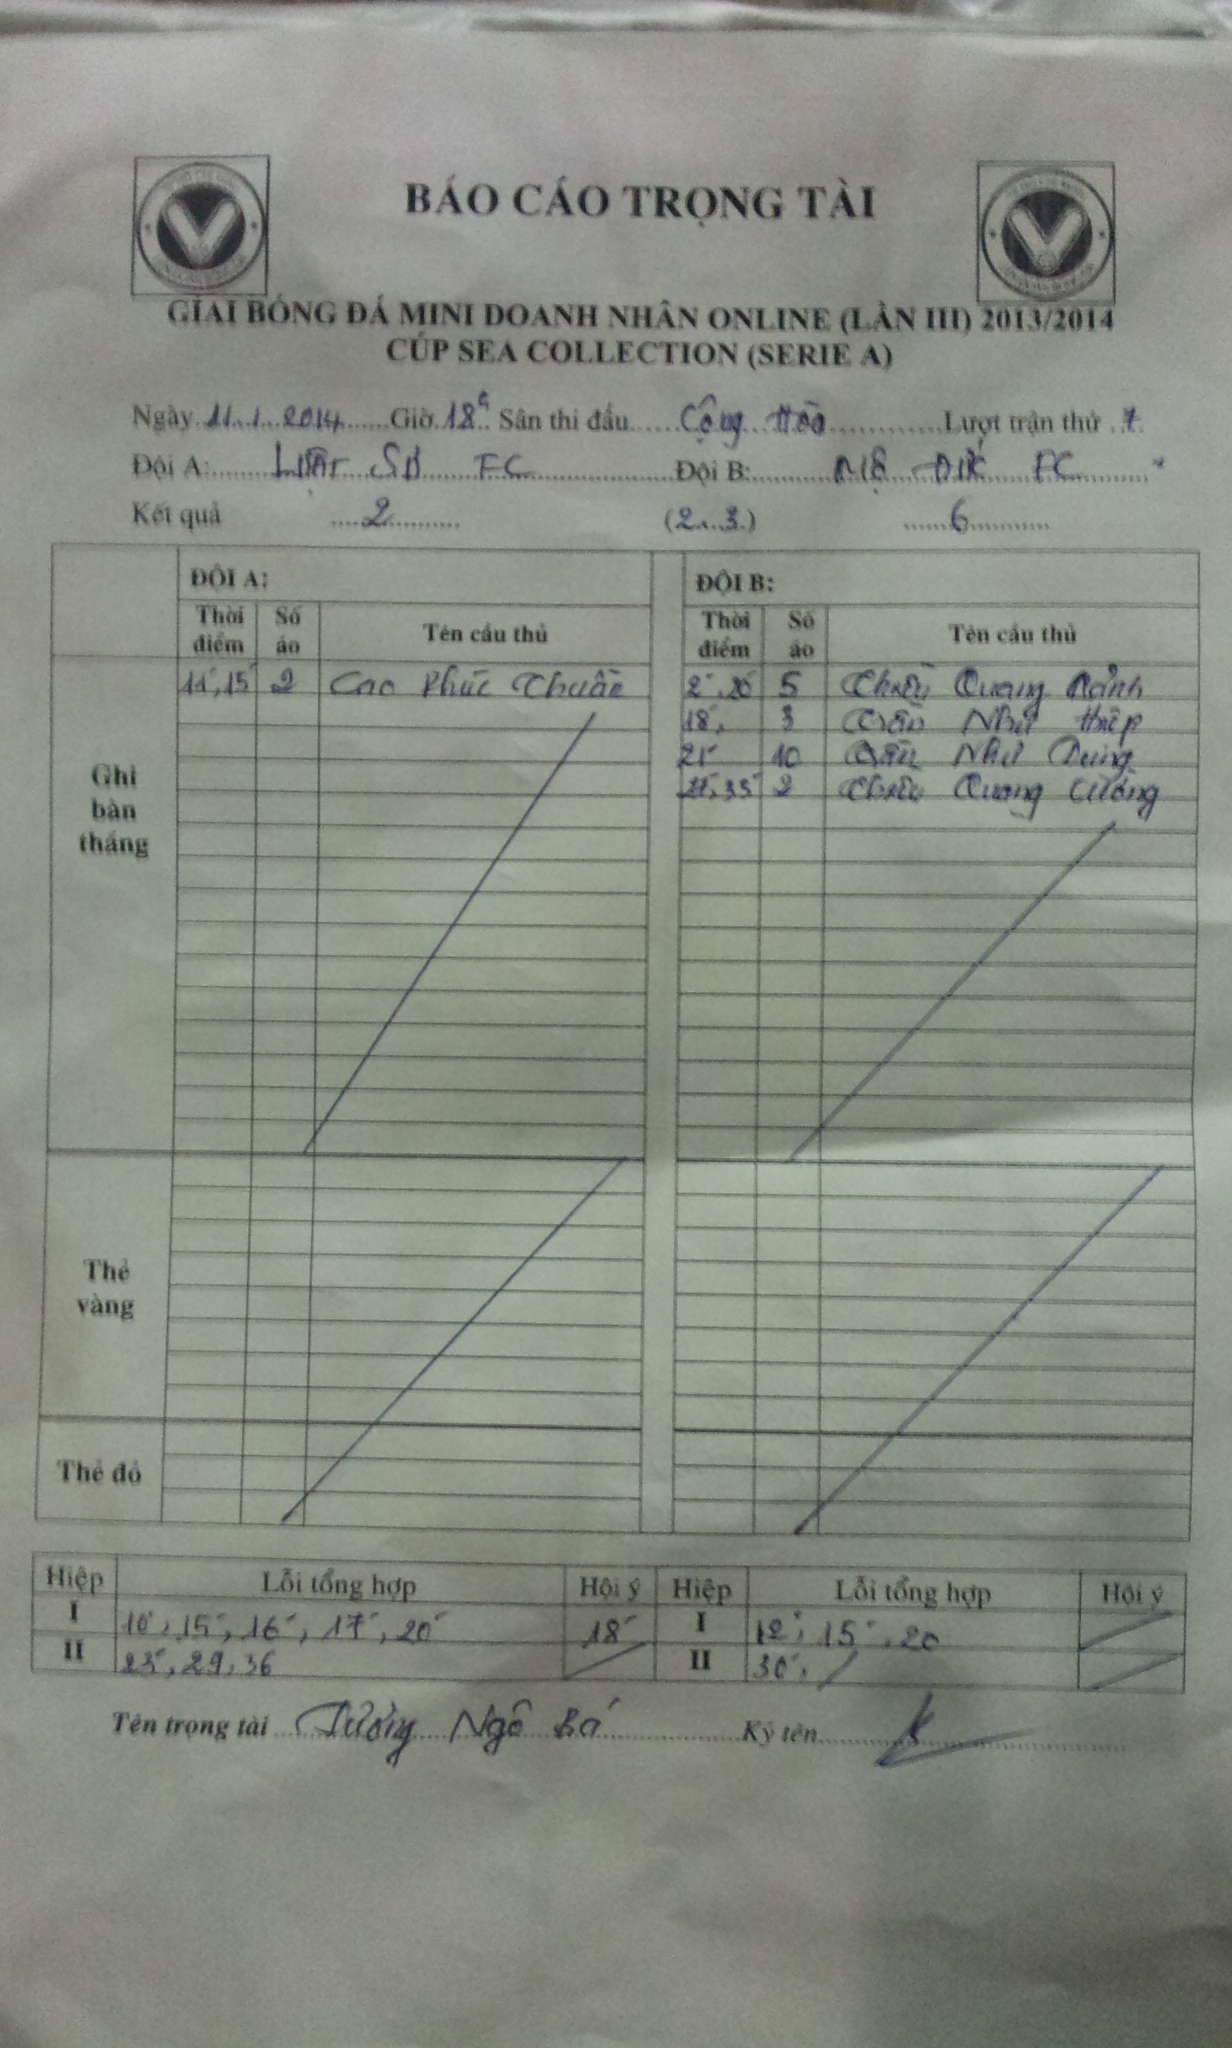 BÁO CÁO TRỌNG TÀI
GIẢI BÓNG ĐÁ MINI DOANH NHÂN ONLINE (LẦN III) 2013/2014
CÚP SEA COLLECTION (SERIE A)
Ngày 11.1.2014 Giờ 18h Sân thi đấu Cộng Hòa Lượt trận thứ 7
Đội A: FC Đội B: FC
Kết quả 2 (2..3.) 6
ĐỘI A: ĐỘI B:
Thời điểm Số áo Tên cầu thủ Thời điểm Số áo Tên cầu thủ
Ghi bàn thắng
11', 15' 2 Cao Phúc Thuần 2', 20' 5 Quang
18', 3 Trần Như Hiệp
21' 10 Trần Như Dung
35' 2 Quang Cường
Thẻ vàng
Thẻ đỏ
Hiệp Lỗi tổng hợp Hội ý Hiệp Lỗi tổng hợp Hội ý
I 10', 15', 16', 17', 20' 18' I 12', 15', 20
II 25', 29, 36 II 30',
Tên trọng tài Ngô Bá Ký tên